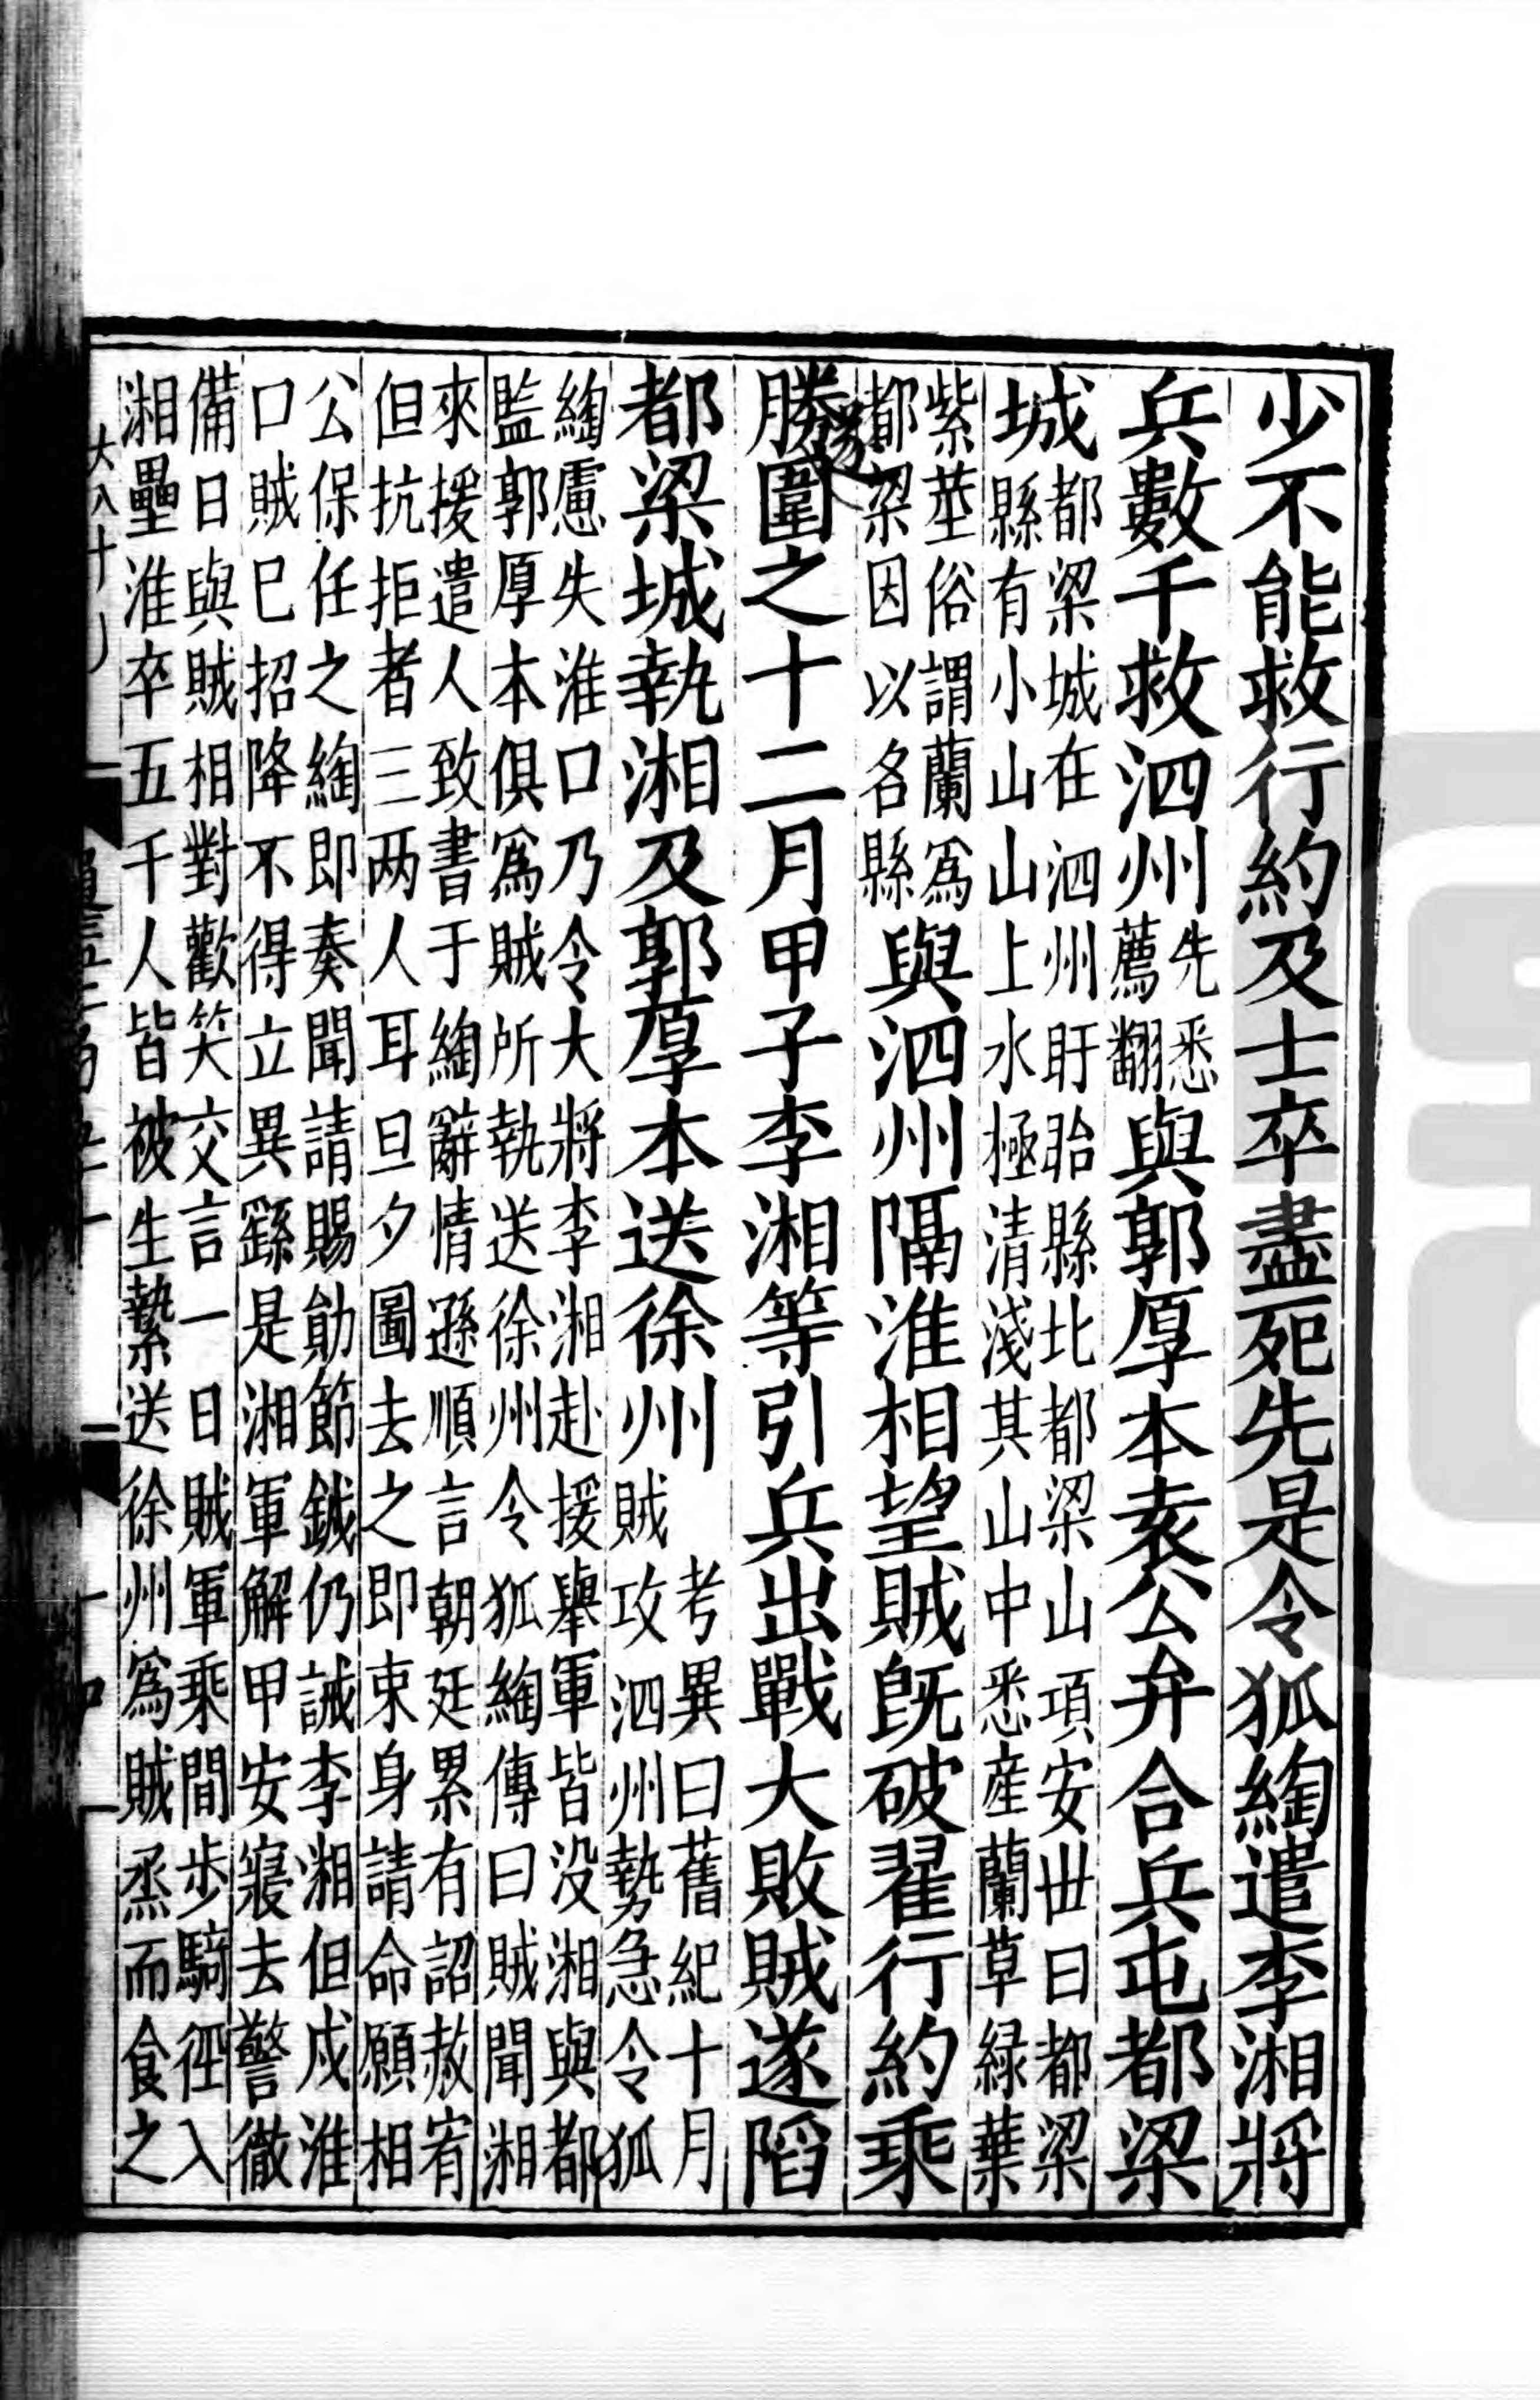 少不能救行約及士卒盡死先是令狐綯遣李湘將
兵數千救泗州
先悉
薦翻
與郭厚本袁公弁合兵屯都梁
城
都梁城在泗州盱眙縣北都梁山項安世曰都梁
縣有小山山上水極清淺其山中悉産蘭草緑葉
紫莖俗謂蘭爲
都梁因以名縣
與泗州隔淮相望賊旣破翟行約乘
勝圍之十二月甲子李湘等引兵出戰大敗賊遂陷
都梁城執湘及郭厚本送徐州
考異曰舊紀十月
賊攻泗州勢急令狐
綯慮失淮口乃令大將李湘赴援舉軍皆没湘與都
監郭厚本俱爲賊所執送徐州令狐綯傳曰賊聞湘
來援遣人致書于綯辭情遜順言朝廷累有詔赦宥
但抗拒者三两人耳旦夕圖去之即束身請命願相
公保任之綯即奏聞請賜勛節鉞仍誡李湘但戍淮
口賊已招降不得立異繇是湘軍解甲安寢去警徹
備日與賊相對歡笑交言一日賊軍乘間步騎徑入
湘壘淮卒五千人皆被生縶送徐州爲賊烝而食之